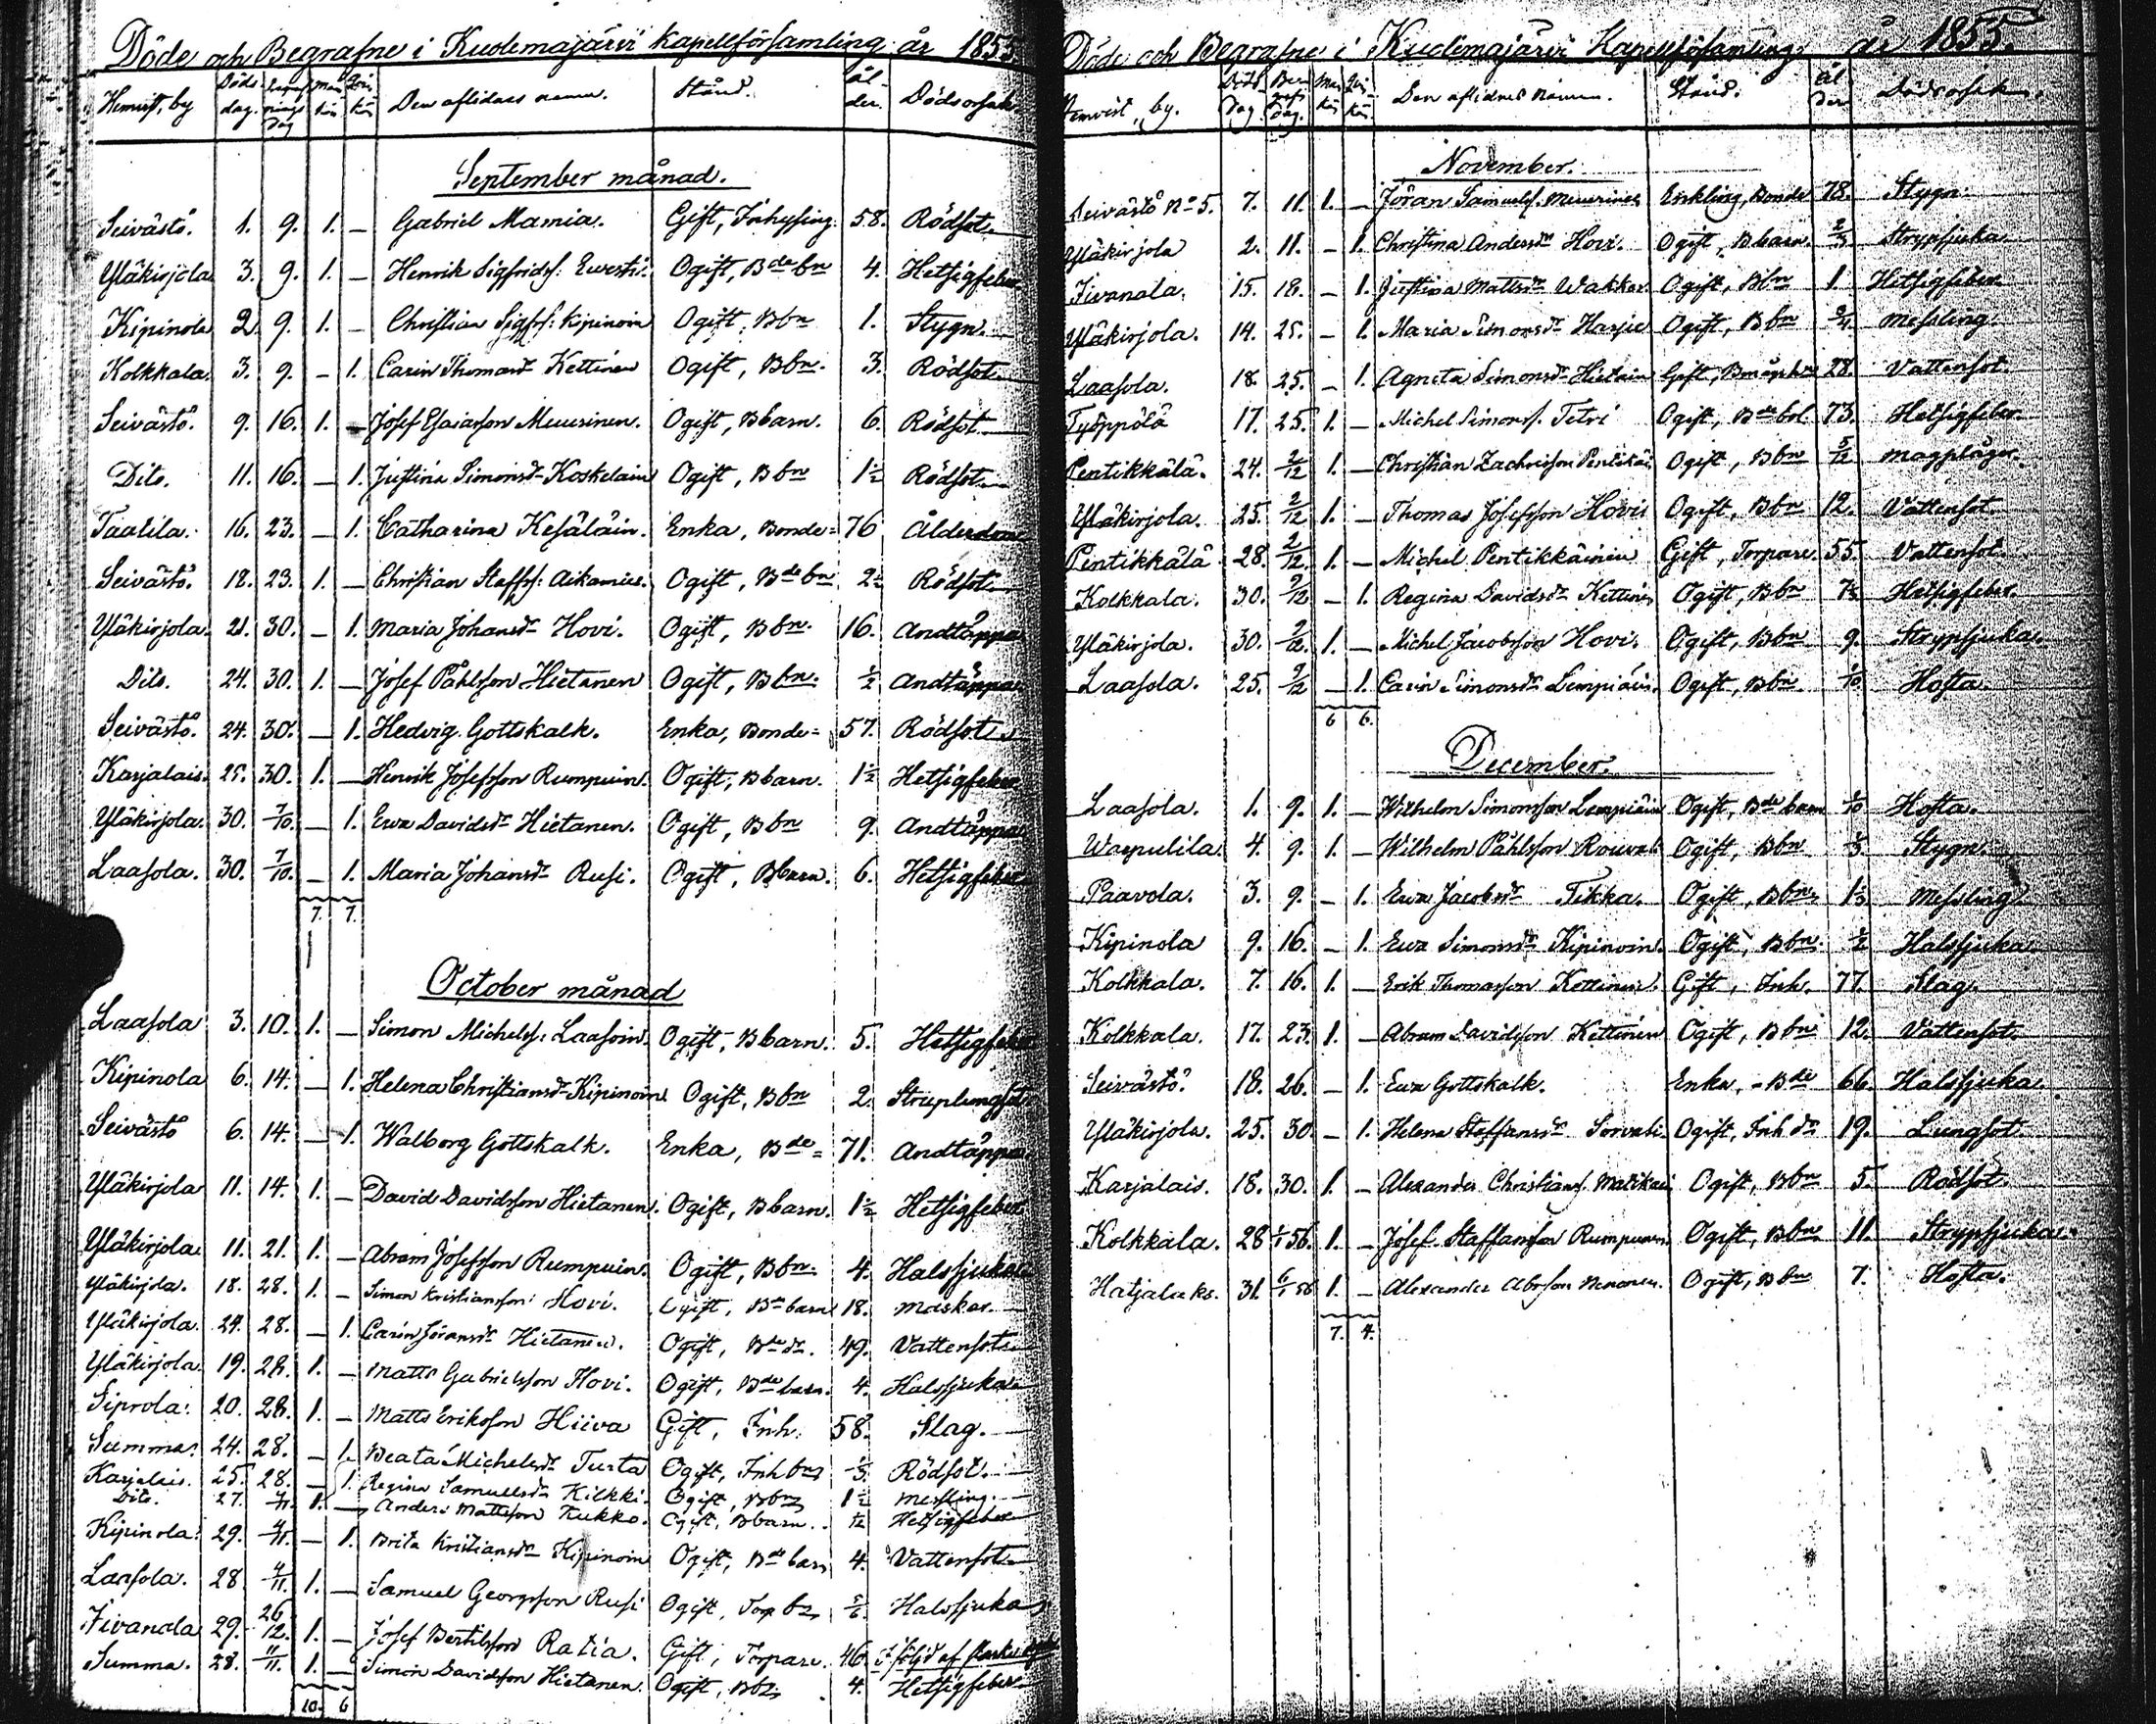 Döde och Begrafne i Kuolemajärvi kapellförsamling år 1855.
Hemvist, by Döds dag. Begrafnings dag Man kön Qvin kön Den aflidnes namn. Stånd. Ålder. Dödsorsak
September månad.
Seivästö. 1. 9. 1. – Gabriel Mamia. Gift, Inhysing. 58. Rödsot.
Yläkirjola 3. 9. 1. – Henrik Sigfridss: Ogift, Bde bn 4. Hetsigfeber
Kipinola 2. 9. 1. – Christian Sigfss: Kipinoin Ogift, Bbn 1. Stygn.
Kolkkala. 3. 9. – 1. Carin Thomasdr Kettinen Ogift, Bbn. 3. Rödsot.
Seivästö. 9. 16. 1. – Josef Esaiasson Meuurinen. Ogift, Bbarn. 6. Rödsot
Dito. 11. 16. – 1. Justina Simonsdr Koskelain Ogift, Bbn 1½ Rödsot.
Taatila. 16. 23. – 1. Catharina Kesäläin. Enka, Bonde= 76 Ålderdom
Seivästö. 18. 23. 1. – Christian Staffss: Aikamies. Ogift, Bde bn 2½ Rödsot.
Yläkirjola. 21. 30. – 1. Maria Johansdr Hovi. Ogift, Bbn. 16. Andtäppa
Dito. 24. 30. 1. – Josef Påhlsson Hietanen Ogift, Bbn. ½ Andtäppa
Seivästö. 24. 30. – 1. Hedvig Gottskalk. Enka, Bonde= 57. Rödsot.
Karjalais. 25. 30. 1. – Henrik Josefsson Rumpuin. Ogift, Bbarn. 1½ Hetsigfeber
Yläkirjola. 30. 7/10. – 1. Ewa Davidsdr Hietanen. Ogift, Bbn 9. Andtäppa
Laasola. 30. 7/10. – 1. Maria Johansdr Rusi. Ogift, Bbarn. 6. Hetsigfeber
7. 7.
October månad
Laasola 3. 10. 1. – Simon Michelss: Laasoin. Ogift, Bbarn. 5. Hetsigfeber
Kipinola 6. 14. – 1. Helena Christiansdr Kipinoin Ogift, Bbn 2.
Seivästö 6. 14. – 1. Walborg Gottskalk. Enka, Bde= 71. Andtäppa
Yläkirjola 11. 14. 1. – David Davidsson Hietanen. Ogift, Bbarn. 1½ Hetsigfeber
Yläkirjola 11. 21. 1. – Abram Josefsson Rumpuin. Ogift, Bbn. 4. Halssjuka
Yläkirjola. 18. 28. 1. – Simon Kristiansson Hovi. Ogift, Bde barn 18. maskar.
Yläkirjola. 24. 28. – 1. Carin Jöransdr Hietanen. Ogift, Bde dr. 49. Vattensot.
Yläkirjola. 19. 28. 1. – Matts Gabrielsson Hovi. Ogift, Bde barn. 4. Halssjuka
Siprola. 20. 28. 1. – Matts Eriksson Hiiva Gift, Inh. 58. Slag.
Summa. 24. 28. – 1. Beata Michelsdr Turta Ogift, Inh bn ⅓ Rödsot.
Karjalais. 25. 28. – 1. Regina Samuelsdr Kilkki. Ogift, Bbn 1½ Messling.
Dito. 27. 4/11. 1. – Anders Mattsson Kukko. Ogift, Bbarn. 1/12 Hetsigfeber
Kipinola. 29. 4/11. – 1. Brita Kristiansdr Kipinoin Ogift, Bde barn 4. Vattensot.
Laasola. 28 4/11. 1. – Samuel Georgsson Rusi Ogift, Torp bn 5/6 Halssjuka
Iivanala 29. 26/12. 1. – Josef Bertilsson Ratia. Gift, Torpare. 46. I följd af
Summa. 28. 11/11. 1. – Simon Davidsson Hietanen. Ogift, Bbn 4. Hetsigfeber
10. 6
Döde och Begrafne i Kuolemajärvi Kapellförsamling år 1855.
Hemvist, by. Döds Dag. Begrafn. dag. Man kön Qvin kön. Den aflidnes Namn. Stånd. Ålder Dödsorsak.
November.
Seivästö No 5. 7. 11. 1. – Jöran Samuelss. Meuurinen Enkling, Bonde 78. Stygn.
Yläkirjola 2. 11. – 1. Christina Andersdr Hovi. Ogift, Bbarn. ⅔ Strypsjuka
Iivanala. 15. 18. – 1. Justina Mattsdr Wakker Ogift, Bbn 1. Hetsigfeber.
Yläkirjola. 14. 25. – 1. Maria Simonsdr Harjie Ogift, Bbn ¾ Messling.
Laasola. 18. 25. – 1. Agneta Simonsdr Hietain Gift, 28. Vattensot.
Työppölä 17. 25. 1. – Michel Simonss. Tetri Ogift, Bde 73. Hetsigfeber.
Pentikkälä. 24. 2/12 1. – Christian Zachrisson Pentikäi Ogift, Bbn 5/12 magplågor.
Yläkirjola. 25. 2/12 1. – Thomas Josefsson Hovi Ogift, Bbn 12. Vattensot.
Pentikkälä 28. 2/12. 1. – Michel Pentikkäinen Gift, Torpare 55. Vattensot.
Kolkkala. 30. 9/12 – 1. Regina Davidsdr Kettinen Ogift, Bbn Hetsigfeber.
Yläkirjola. 30. 9/12. 1. – Michel Jacobsson Hovi. Ogift, Bbn 9. Strypsjuka.
Laasola. 25. 9/12 – 1. Carin Simonsdr Lempiäin. Ogift, Bbn 1/10 Hosta.
6 6.
December.
Laasola. 1. 9. 1. – Wilhelm Simonsson Lempiäin Ogift, Bde barn 1/10 Hosta.
Warpulila 4. 9. 1. – Wilhelm Påhlsson Rouvali Ogift, Bbn ⅓ Stygn.
Paavola. 3. 9. – 1. Ewa Jacobsdr Tikka. Ogift, Bbn. 1⅓ Messling.
Kipinola 9. 16. – 1. Ewa Simonsdr Kipinoin. Ogift, Bbn. ½ Halssjuka
Kolkkala. 7. 16. 1. – Erik Thomasson Kettinen. Gift, Inh. 77. Slag.
Kolkkala. 17. 23. 1. – Abram Davidsson Kettinen Ogift, Bbn 12. Vattensot.
Seivästö. 18. 26. – 1. Ewa Gottskalk. Enka, Bde 66. Halssjuka.
Yläkirjola. 25. 30. – 1. Helena Staffansdr Sorvali. Ogift, Inh dr 19. Lungsot.
Karjalais. 18. 30. 1. – Alexander Christianss. Matikai Ogift, Bbn 5. Rödsot.
Kolkkala. 28 1/1 56. 1. – Josef Staffansson Rumpunen Ogift, Bbn 11. Strypsjuka.
Hatjalaks. 31. 6/1 56 1. – Alexander Abrsson Ogift, Bbn 7. Hosta.
7. 4.